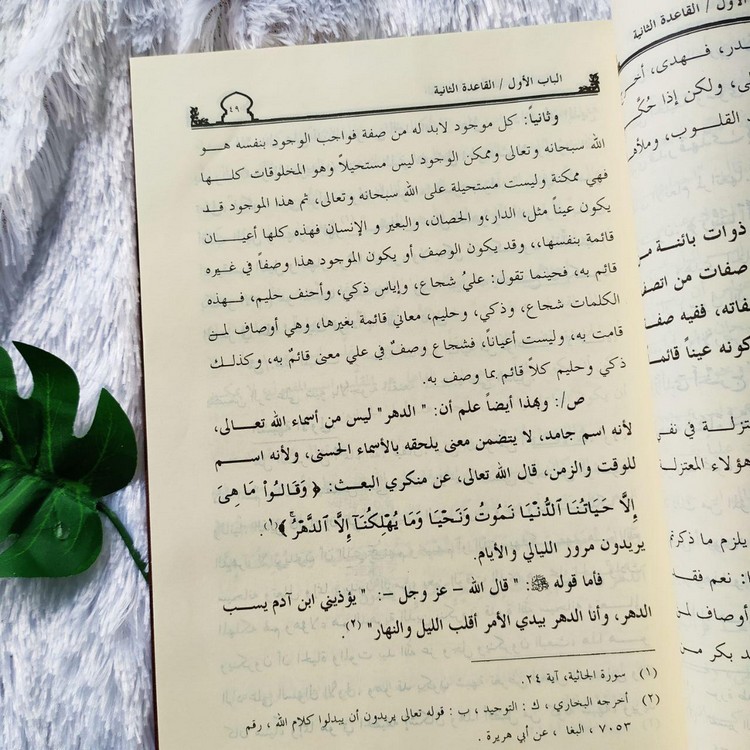 الباب الأول / القاعدة الثانية
٤٩
وثانياً: كل موجود لابد له من صفة فواجب الوجود بنفسه هو
الله سبحانه وتعالى وممكن الوجود ليس مستحيلاً وهو المخلوقات كلها
فهي ممكنة وليست مستحيلة على الله سبحانه وتعالى، ثم هذا الموجود قد
يكون عيناً مثل، الدار،و الحصان، والبعير و الإنسان فهذه كلها أعيان
قائمة بنفسها،، وقد يكون الوصف أو يكون الموجود هذا وصفاً في غيره
قائم به، فحينما تقول: عليُ شجاع، وإياس ذكي، وأحنف حليم، فهذه
الكلمات شجاع، وذكي، وحليم، معاني قائمة بغيرها، وهي أوصاف لمن
قامت به، وليست أعياناً، فشجاع وصفٌ في علي معنى قائمٌ به، وكذلك
ذكي وحليم كلاً قائم بما وصف به.
ص/: وبهذا أيضاً علم أن: " الدهر" ليس من أسماء الله تعالى،
لأنه اسم جامد، لا يتضمن معنى يلحقه بالأسماء الحسنى، ولأنه اسم
للوقت والزمن، قال الله تعالى، عن منكري البعث: ﴿ وَقَالُواْ مَا هِىَ
إِلَّا حَيَاتُنَا ٱلدُّنْيَا نَمُوتُ وَنَحْيَا وَمَا يُهْلِكُنَآ إِلَّا ٱلدَّهْرُ ۚ ﴾(١).
يريدون مرور الليالي والأيام.
فأما قوله ﷺ: " قال الله – عز وجل –: " يؤذيني ابن آدم يسب
الدهر، وأنا الدهر بيدي الأمر أقلب الليل والنهار" (٢).
(١) سورة الجاثية، آية ٢٤.
(٢) أخرجه البخاري ، ك : التوحيد ، ب : قوله تعالى يريدون أن يبدلوا كلام الله ، رقم
٧٠٥٣ ، البغا ، عن أبي هريرة .
الأول / القاعدة الثانية
فهدى،
ولكن إذا
القلوب،
ذوات بائنة
صفات من
ففيه
كونه عيناً
في
هؤلاء المعتزلة
يلزم ما
نعم
أوصاف
بكر من